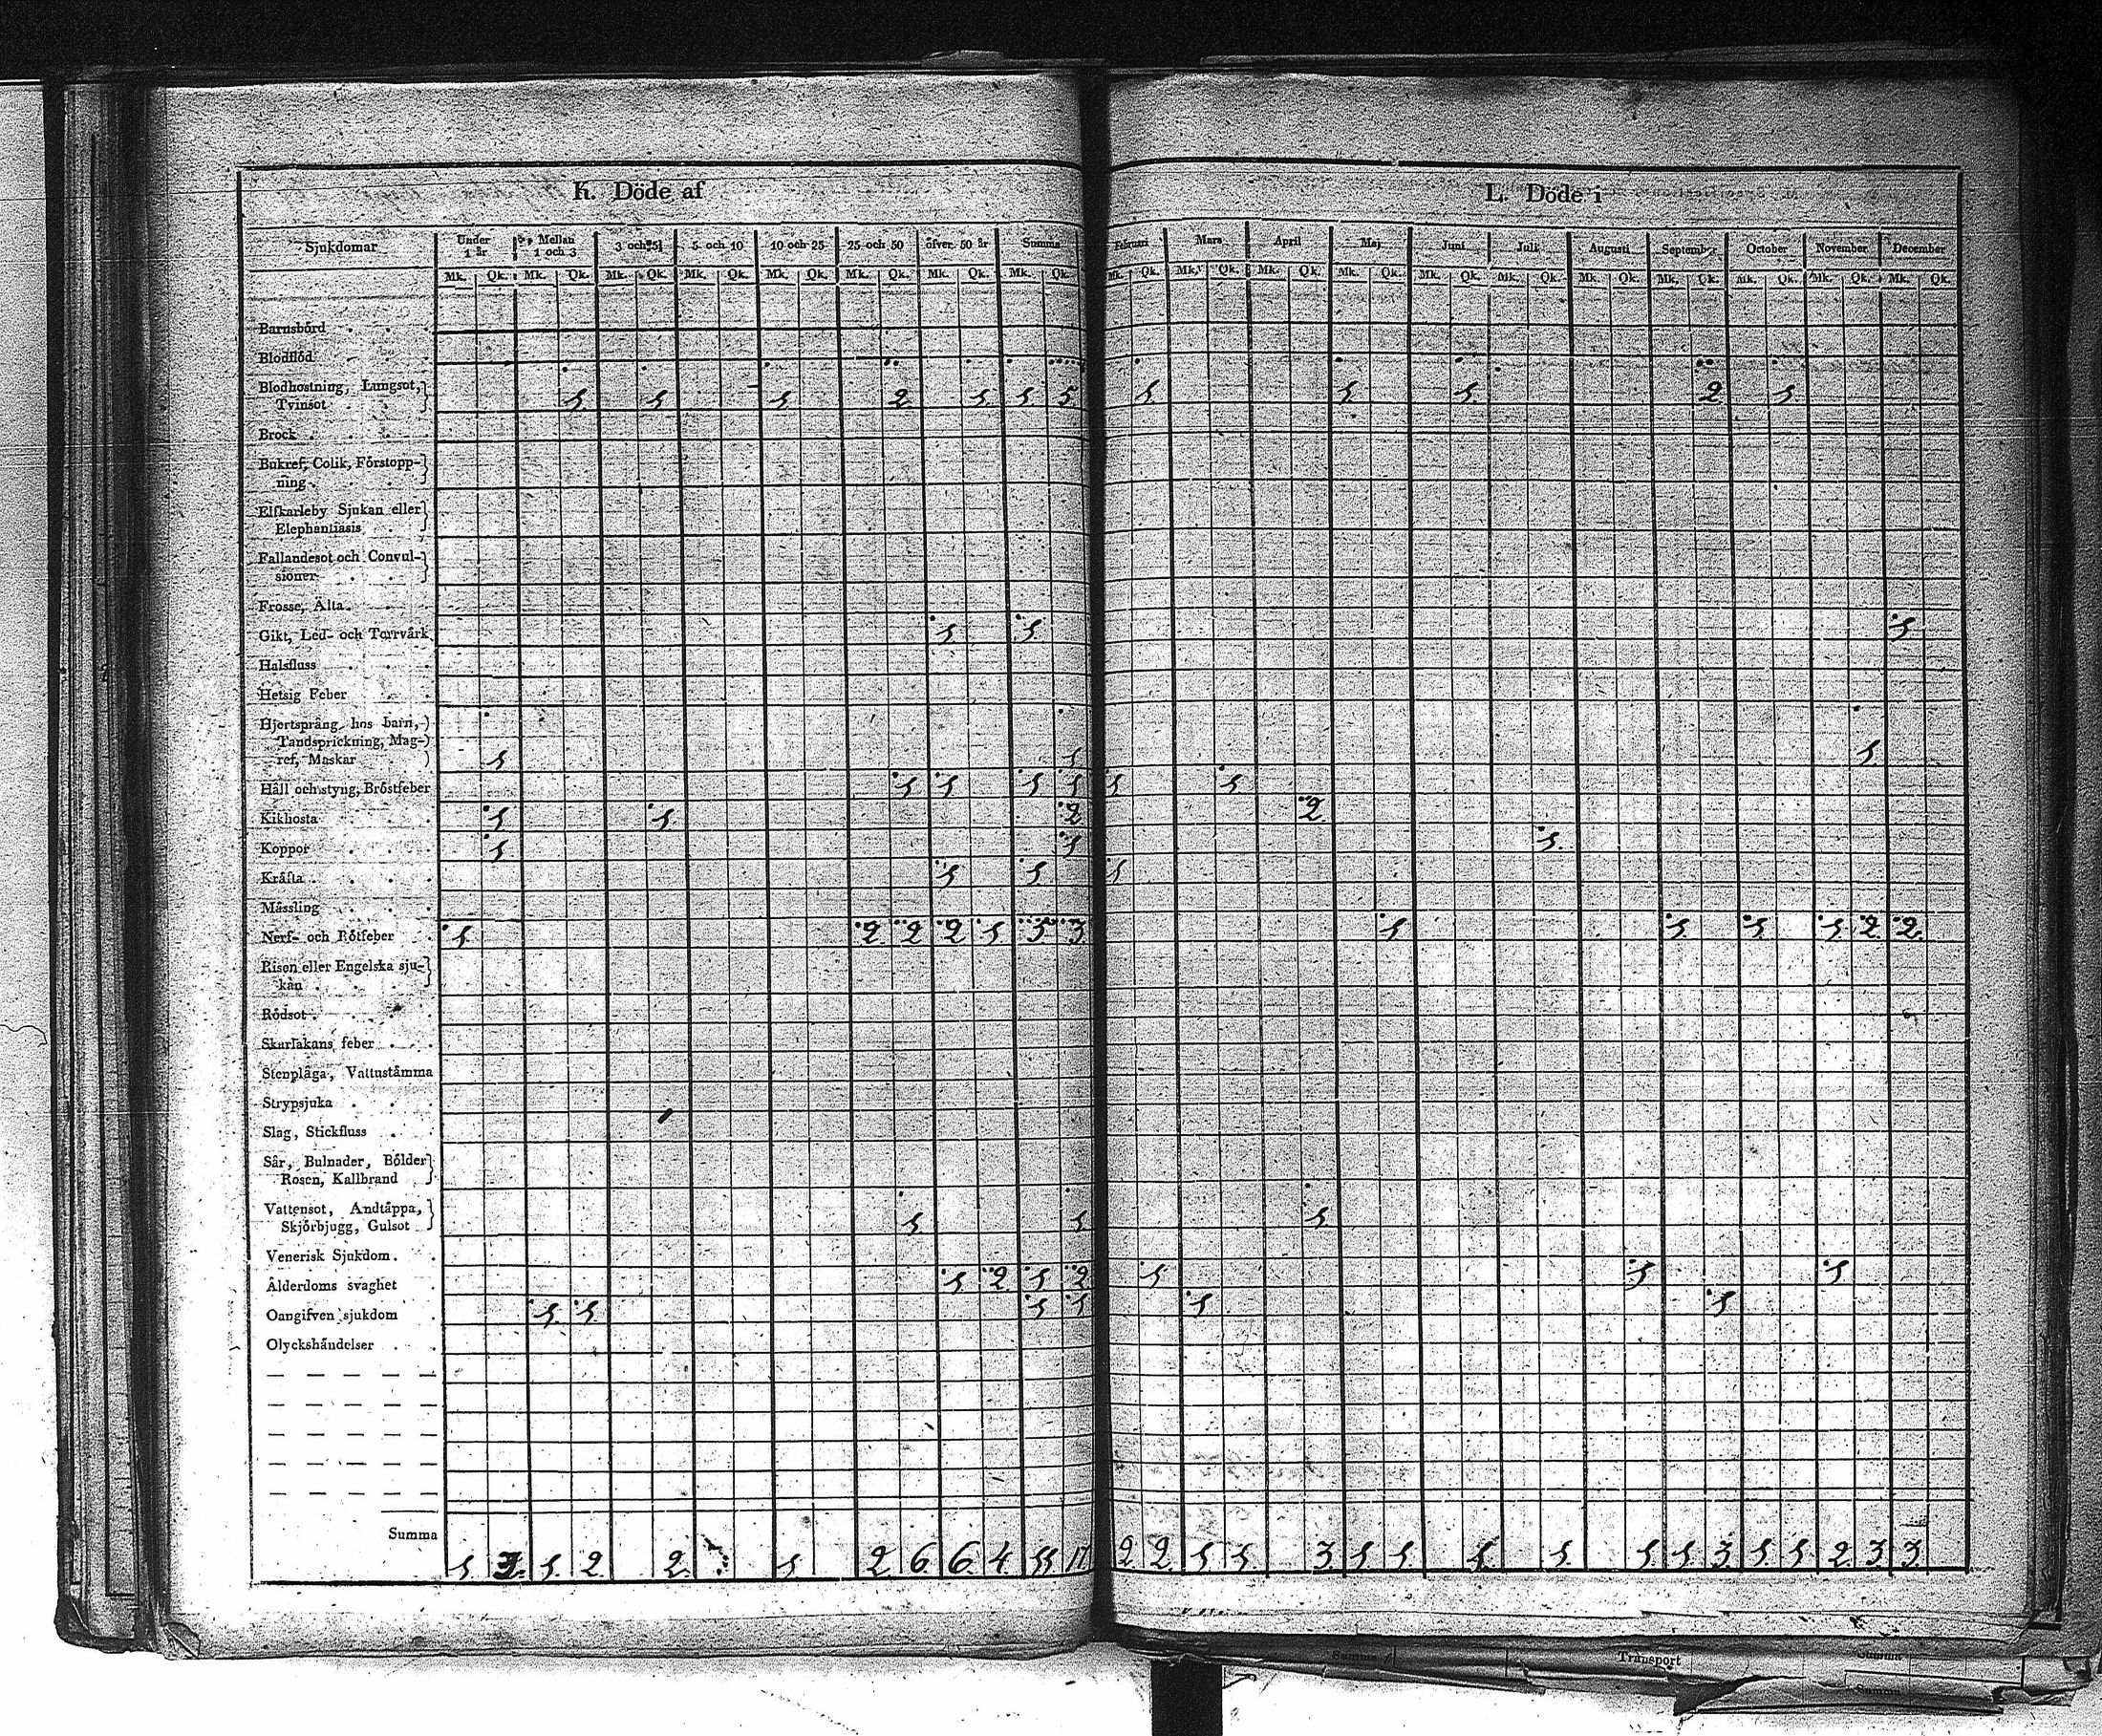 K. Döde af
L. Döde i
Sjukdomar Under 1 år Mellan 1 och 3 3 och 5 5 och 10 10 och 25 25 och 50 öfver 50 år Summa Februari Mars April Maj Juni Juli Augusti September October November December
Mk. Qk. Mk. Qk. Mk. Qk. Mk. Qk. Mk. Qk. Mk. Qk. Mk. Qk. Mk. Qk. Mk. Qk. Mk. Qk. Mk. Qk. Mk. Qk. Mk. Qk. Mk. Qk. Mk. Qk. Mk. Qk. Mk. Qk. Mk. Qk. Mk. Qk.
Barnsbörd
Blodflöd
Blodhostning, Lungsot,
Tvinsot 1 1 1 2 1 1 5 1 1 1 2 1
Brock
Bukref, Colik, Förstopp-
ning
Elfkarleby Sjukan eller
Elephantiasis
Fallandesot och Convul-
sioner
Frosse, Älta
Gikt, Led- och Torrvärk 1 1 1
Halsfluss
Hetsig Feber
Hjertsprång hos barn,
Tandsprickning, Mag-
ref, Maskar 1 1 1
Håll och styng, Bröstfeber 1 1 1 1 1 1
Kikhosta 1 1 2 2
Koppor 1 1 1
Kräfta 1 1 1
Mässling
Nerf- och Rötfeber 1 2 2 2 1 5 3 1 1 1 1 2 2
Risen eller Engelska sju-
kan
Rödsot
Skarlakans feber
Stenplåga, Vattustämma
Strypsjuka
Slag, Stickfluss
Sår, Bulnader, Bölder
Rosen, Kallbrand
Vattensot, Andtäppa,
Skjörbjugg, Gulsot 1 1 1
Venerisk Sjukdom
Ålderdoms svaghet 1 2 1 2 1 1 1
Oangifven sjukdom 1 1 1 1 1 1
Olyckshändelser
Summa 1 3 1 2 2 1 2 6 6 4 11 17 2 2 1 1 3 1 1 1 1 1 1 3 1 1 2 3 3
Summa Transport Summa
Summa